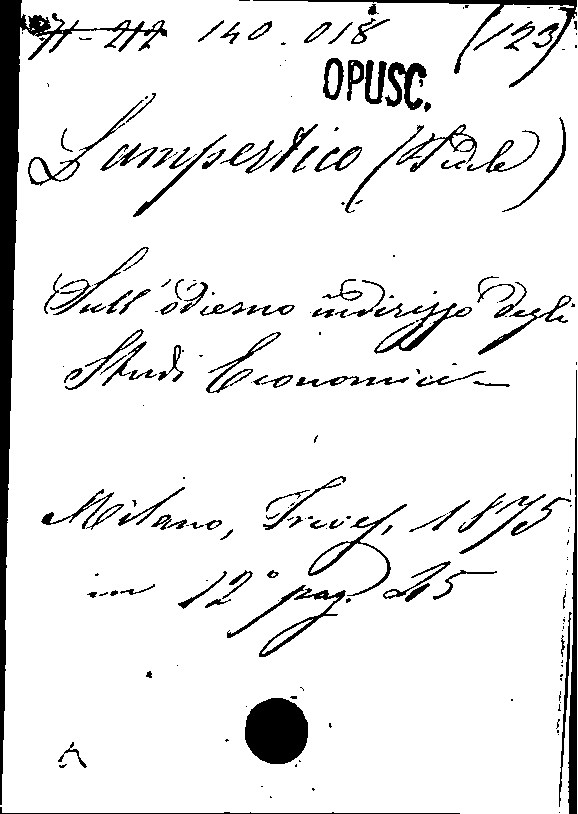 71-212 140.018 (123)
OPUSC.
Lampertico (Fedele)
Sull'odierno indirizzo degli
Studi Economici
Milano, Treves, 1875
in 12° pag. 45